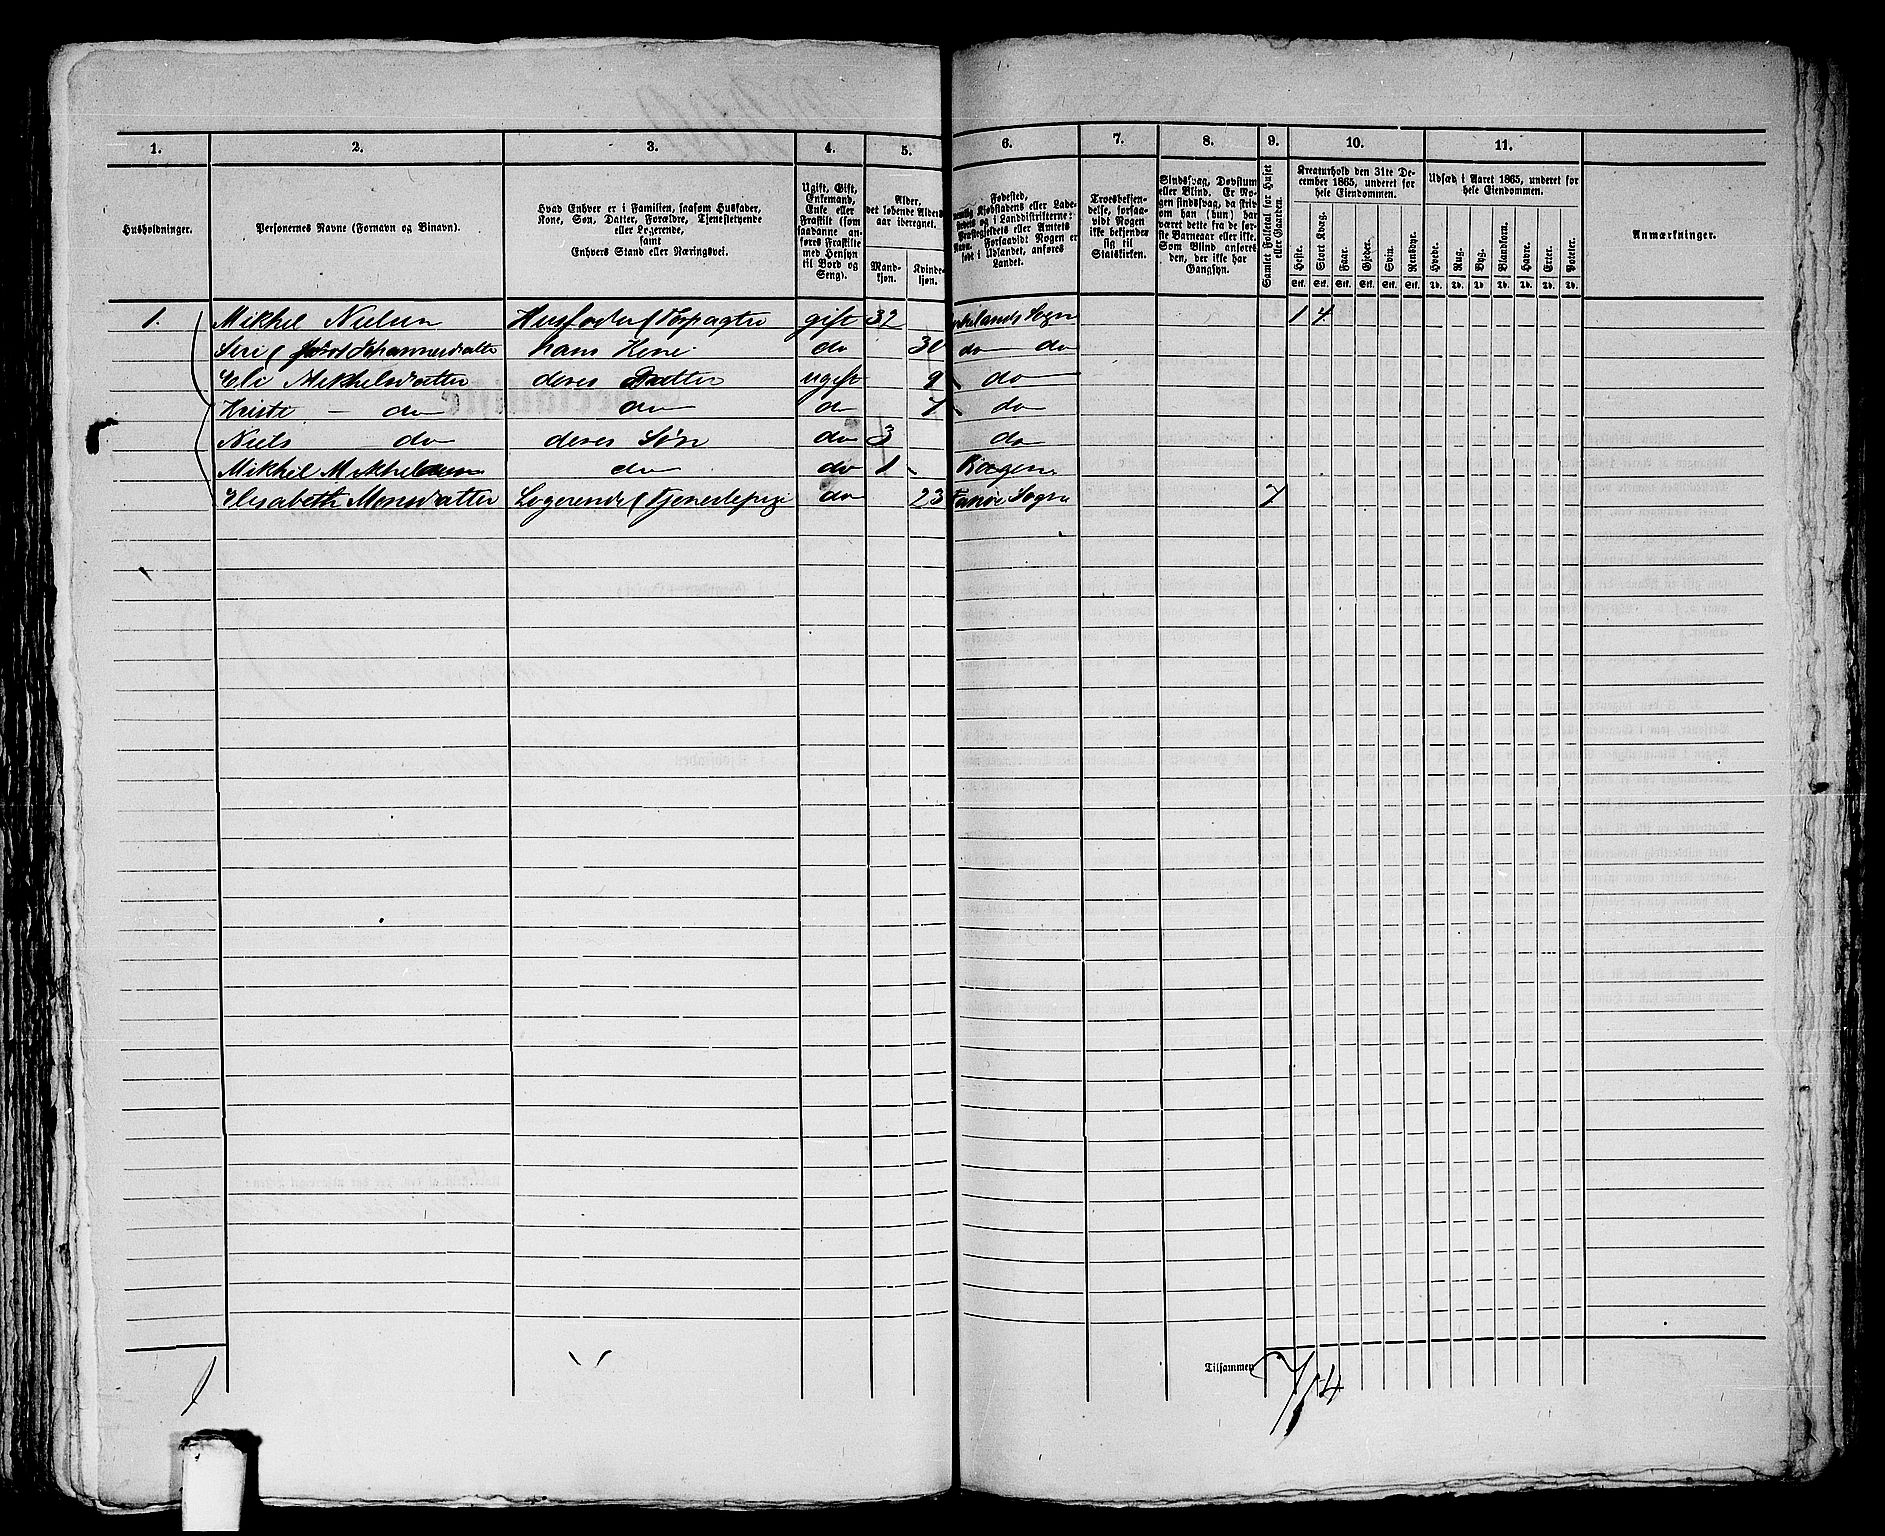 1. 2. 3. 4. 5. 6. 7. 8. 9. 10. 11.
Husholdninger.
Personernes Navne (Fornavn og Binavn).
Hvad Enhver er i Familien, saasom Husfader,
Kone, Søn, Datter, Forældre, Tjenestetyende
eller Logerende,
samt
Enhvers Stand eller Næringsvei.
Ugift, Gift,
Enkemand,
Enke eller
Fraskilt (som
saadanne an-
føres Fraskilte
med Hensyn
til Bord og
Seng).
Alder,
det løbende Alders-
aar iberegnet.
Mand-
kjøn.
Kvinde-
kjøn.
Fødested,
Kjøbstadens eller Lade-
og i Landdistrikterne:
Præstegjeldets eller Amtets
Navn. Forsaavidt Nogen er
født i Udlandet, anføres
Landet.
Troesbekjen-
delse, forsaa-
vidt Nogen
ikke bekjender
sig til
Statskirken.
Sindssvag, Døvstum
eller Blind. Er No-
gen sindssvag, da skriv
om han (hun) har
været dette fra de før-
ste Barneaar eller ikke.
Som Blind anføres
den, der ikke har
Gangsyn.
Samlet Folketal for Huset
eller Gaarden.
Kreaturhold den 31te De-
cember 1865, underet for
hele Eiendommen.
Heste. Stort Kvæg. Faar. Gjeder. Svin. Rensdyr.
Stk. Stk. Stk. Stk. Stk. Stk.
Udsæd i Aaret 1865, underet for
hele Eiendommen.
Hvede. Rug. Byg. Blandkorn. Havre. Erter. Poteter.
Td. Td. Td. Td. Td. Td. Td.
Anmærkninger.
1. Mikkel Nielsen Husfader Forpagter gift 32 Sogn 1 4
Siri Johannesdatter hans Kone do 30 do do
Eli Mikkelsdatter deres Datter ugift 9 do
Kristi - do do do 7 do
Niels do deres Søn do 3 do
Mikkel Mikkelsen do do 1
Elisabeth Monsdatter Logerende Tjenestepige do 23 Sogn 7
Tilsammen 7 1 4